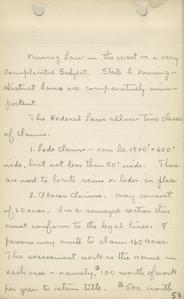 Mining Law in the west is a very
complicated subject. State & mining-
district Laws are comparatively unim-
portant.
The Federal Laws allow two classes
of Claims.
1. Lode Claims - can be 1500' x 600'
wide, but not less than 50' wide. These
are used to locate veins or lodes in place
2. Placer Claims, may consist
of 20 acres. If in a surveyed section this
must conform to the legal lines. 8
persons may unite to claim 160 acres.
The assessment work is the same in
each case - namely, $100 worth of work
per year to retain title. $500 worth